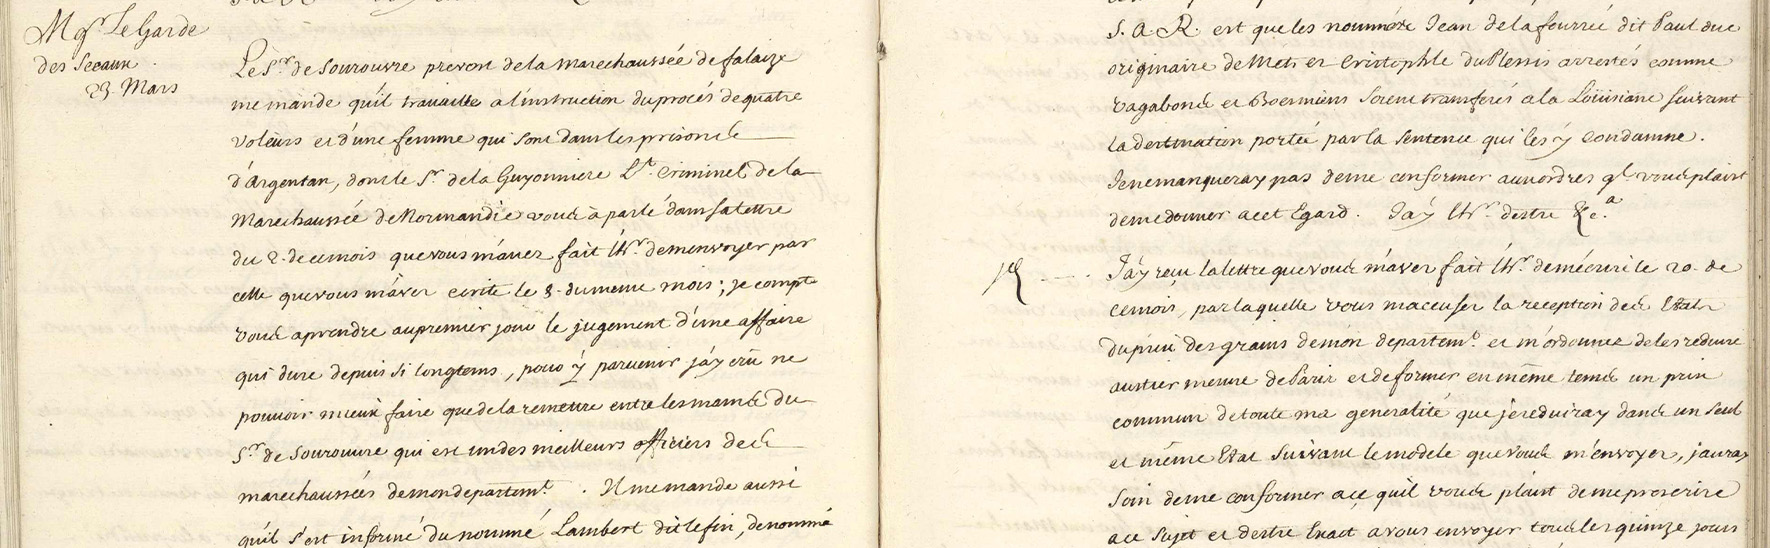 Mgr. Le Garde
des Sceaux
23 Mars
Le Sr. de Sourouvre prevost de la marechaussée de falaize
me mande qu'il travaille a l'instruction du procés de quatre
voleurs et d'une femme qui sont dans les prisons de
d'Argentan, dont le Sr. de la Guyonniere Lt. Criminel de la
Marechaussée de Normandie vous à parlé dans sa lettre
du 2. de ce mois que vous m'avez fait l'hr. de m'envoyer par
celle que vous m'avez ecrite le 8. du meme mois; je compte
vous aprendre au premier jour le jugement d'une affaire
qui dure depuis si longtems, pour y parvenir j'ay crû ne
pouvoir mieux faire que de la remettre entre les mains du
Sr. de Sourouvre qui est un des meilleurs officiers des
marechaussées de mon departemt. Il me mande aussi
qu'il s'est informé du nommé Lambert dit lefin, denommé
S. A. R. est que les nommés Jean de lafourreé dit Paul duc
originaire de Mets et Cristophle du Plessis arrestés comme
vagabonds et Boemiens soient transferés a la Loüisiane suivant
la destination portée par la sentence qui les y condamne.
Je ne manqueray pas de me conformer aux ordres ql. vous plaist
de me donner a cet Egard. J'ay l'hr. destre &c.a
J'ay reçu la lettre que vous m'avez fait l'hr. de m'écrire le 20. de
ce mois, par laquelle vous m'accusez la reception des Etats
du prix des grains de mon departemt. et m'ordonnez de les reduire
au stier mesure de Paris et de former en même temps un prix
commun de toute ma generalité que je reduiray dans un seul
et même Etat suivant le modele que vous m'envoyez, j'auray
soin de me conformer a ce quil vous plaist de me prescrire
a ce sujet et destre Exact a vous envoyer tous les quinze jours